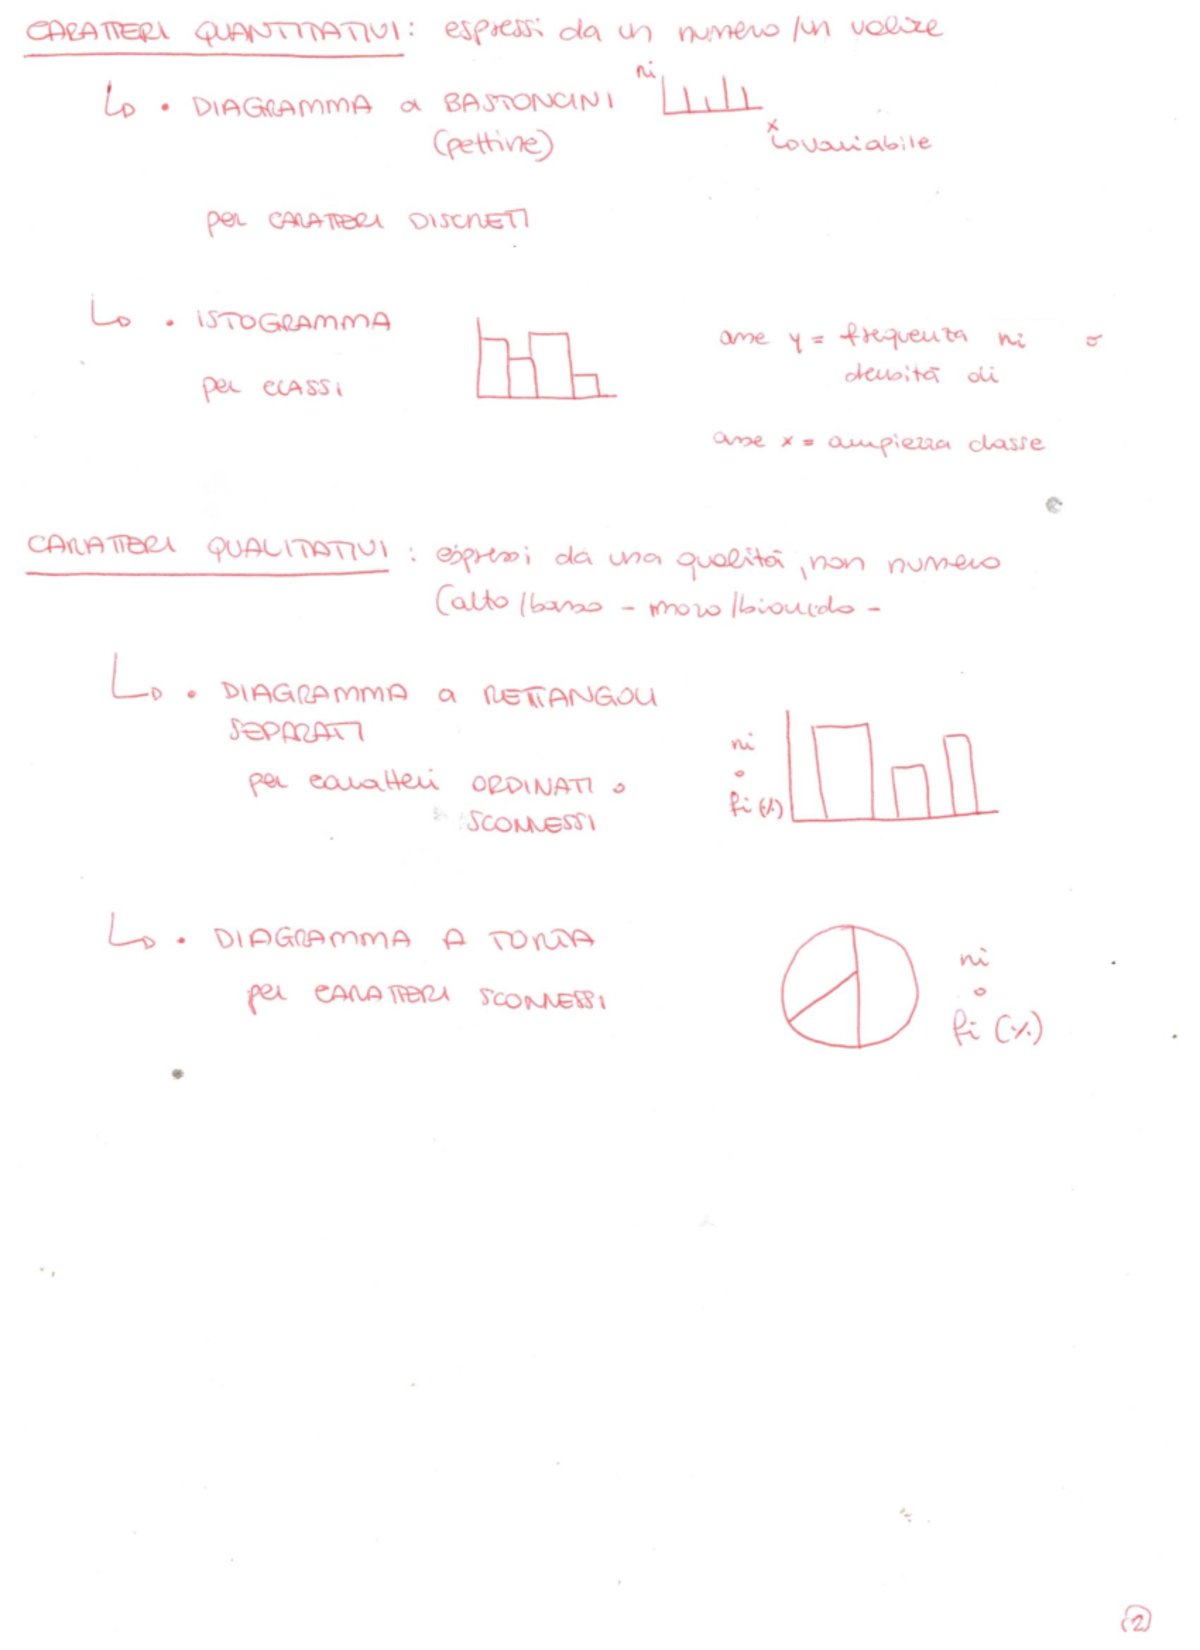 CARATTERI QUANTITATIVI: espressi da un numero/un valore
• DIAGRAMMA a BASTONCINI
(pettine)
ni
x
covariabile
per CARATTERI DISCRETI
• ISTOGRAMMA
per CLASSI
asse y = frequenza ni o
densità di
asse x = ampiezza classe
CARATTERI QUALITATIVI: espressi da una qualità, non numero
(alto/basso - moro/biondo -
• DIAGRAMMA a RETTANGOLI
SEPARATI
per caratteri ORDINATI o
SCONNESSI
ni
o
fi (%)
• DIAGRAMMA A TORTA
per CARATTERI SCONNESSI
ni
o
fi (%)
2